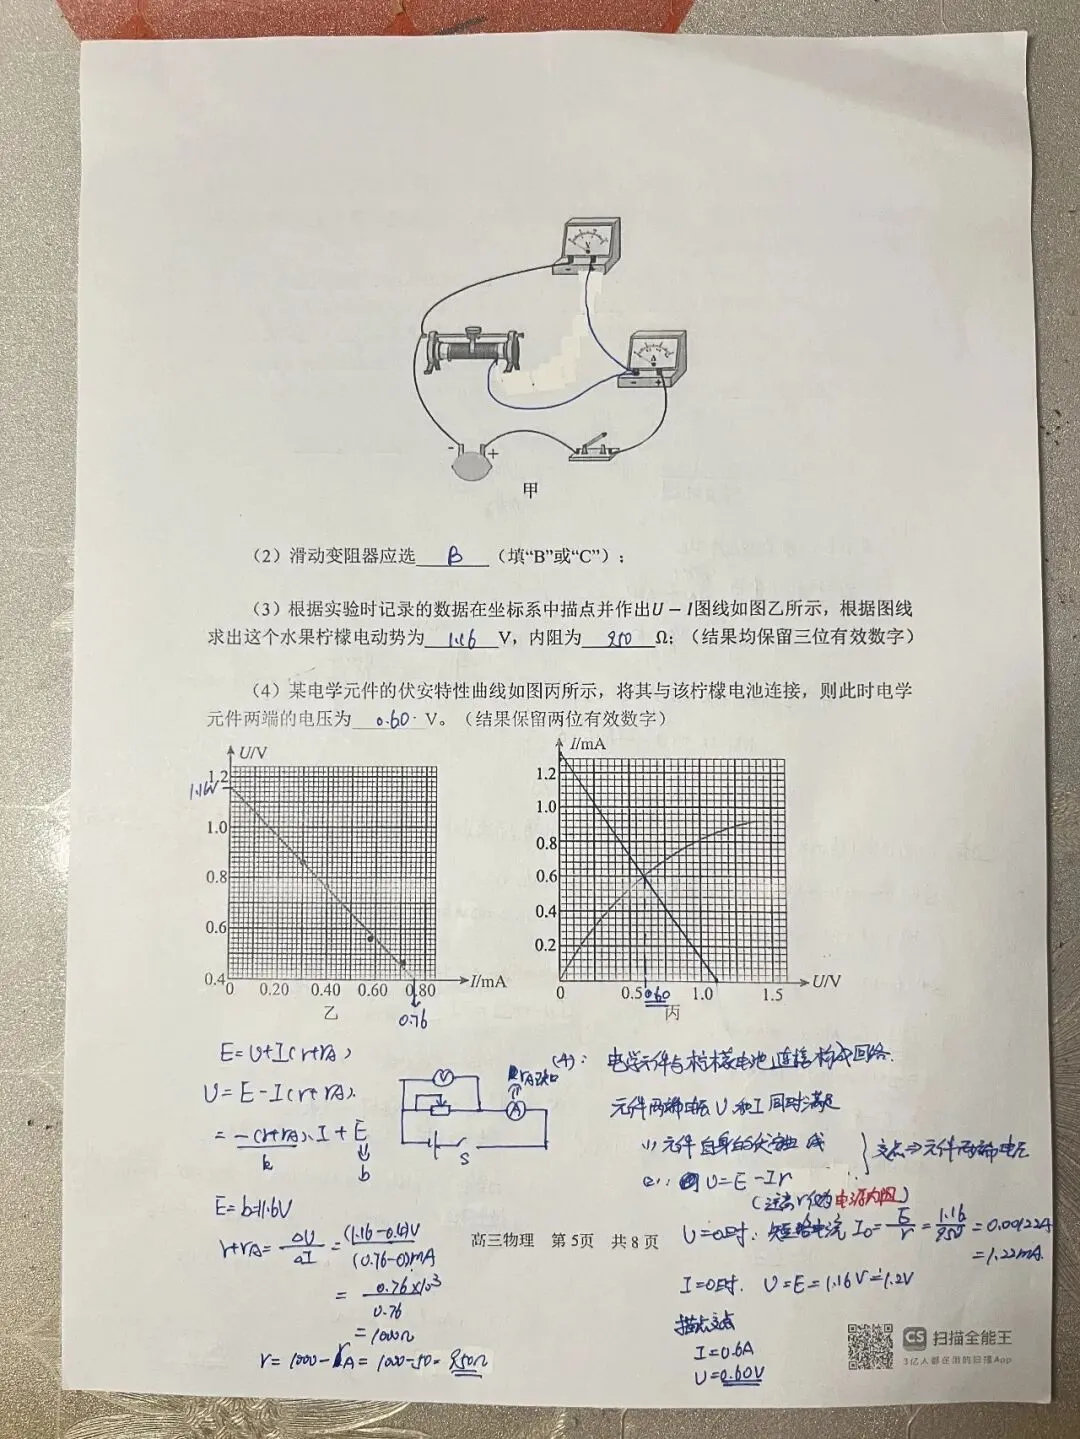 V
A
- +
- +
甲
(2)滑动变阻器应选 B (填“B”或“C”);
(3)根据实验时记录的数据在坐标系中描点并作出U-I图线如图乙所示,根据图线
求出这个水果柠檬电动势为 1.16 V,内阻为 950 Ω;(结果均保留三位有效数字)
(4)某电学元件的伏安特性曲线如图丙所示,将其与该柠檬电池连接,则此时电学
元件两端的电压为 0.60 V。(结果保留两位有效数字)
U/V
1.2
1.16V
1.0
0.8
0.6
0.4
0 0.20 0.40 0.60 0.80 I/mA
乙
0.76
I/mA
1.2
1.0
0.8
0.6
0.4
0.2
0 0.5 0.60 1.0 1.5 U/V
丙
E=U+I(r+rA)
U=E-I(r+rA)
=-(r+rA)·I+E
k b
E=b=1.16V
r+rA=ΔU/ΔI=(1.16-0.4)V/(0.76-0)mA
=0.76×10³/0.76
=1000Ω
r=1000-rA=1000-50=950Ω
V
A
S
rA已知
(4): 电学元件与柠檬电池连接构成回路.
元件两端电压U和I同时满足
(1)元件自身的伏安曲线
(2): U=E-Ir
交点⇒元件两端电压
(这离r仅为电源内阻)
U=0时. 短路电流 I₀=E/r=1.16/950=0.00122A
=1.22mA.
I=0时. U=E=1.16V≐1.2V
描点交点
I=0.6A
U=0.60V
高三物理 第5页 共8页
CS 扫描全能王
3亿人都在用的扫描App